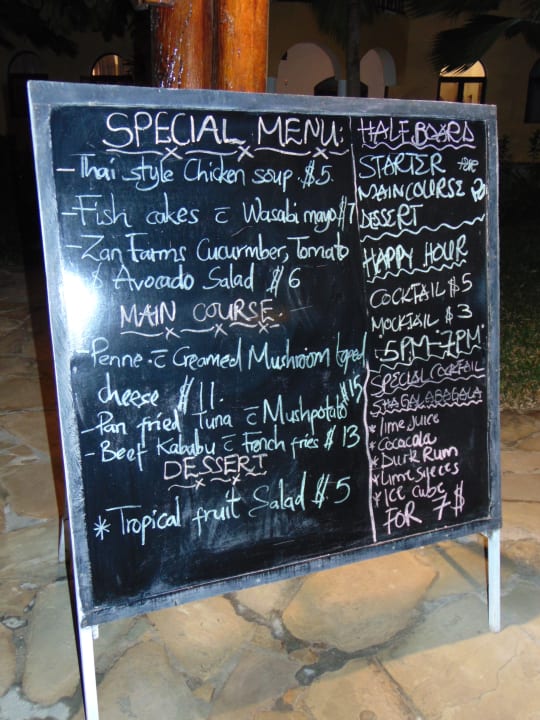 SPECIAL MENU:
- Thai style Chicken soup $5.
- Fish cakes c̄ Wasabi mayo $7
- Zan Farms Cucurmber, Tomato
& Avocado Salad $6
MAIN COURSE.
- Penne c̄ Creamed Mushroom toped
cheese $11.
- Pan fried Tuna c̄ Mushpotato $15
- Beef Kababu c̄ French fries $13
DESSERT
* Tropical fruit Salad $5
HALF BOARD
STARTER
MAIN COURSE
DESSERT
HAPPY HOUR
COCKTAIL $5
MOCKTAIL $3
5PM-7PM
SPECIAL COCKTAIL
SHAGALABAGALA
* lime Juice
* Cocacola
* Durk Rum
* Lime slieces
* Ice Cube
FOR 7$